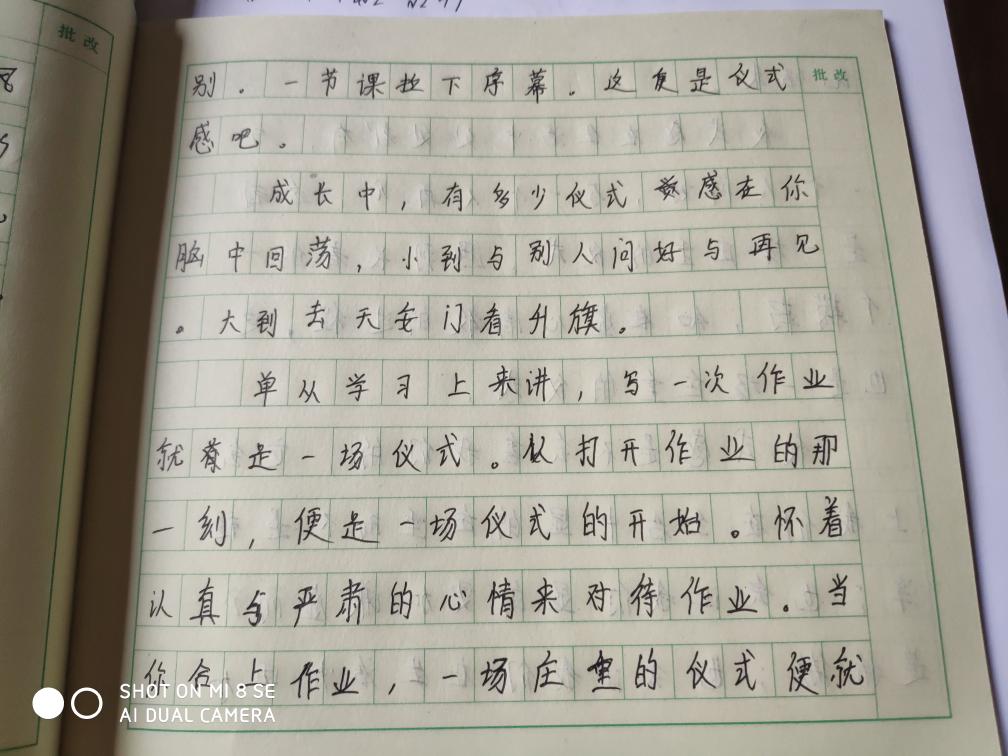 批改
批改
别。一节课拉下序幕。这便是仪式
感吧。
成长中，有多少仪式感在你
脑中回荡，小到与别人问好与再见
。大到去天安门看升旗。
单从学习上来讲，写一次作业
就是一场仪式。从打开作业的那
一刻，便是一场仪式的开始。怀着
认真与严肃的心情来对待作业。当
你合上作业，一场庄重的仪式便就
SHOT ON MI 8 SE
AI DUAL CAMERA